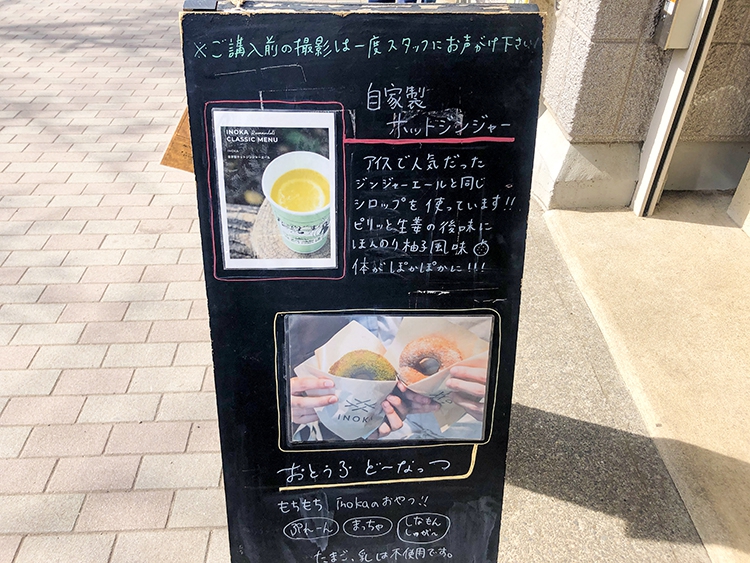 ※ご講入前の撮影は一度スタッフにお声がけ下さい
自家製
ホットジンジャー
INOKA Recommended
CLASSIC MENU
INOKA
自家製ホットジンジャーエール
アイスで人気だった
ジンジャーエールと同じ
シロップを使っています!!
ピリッと生姜の後味に
ほんのり柚子風味
体がぽかぽかに!!!
INOKA
おとうふ ど〜なっつ
もちもち Inokaのおやつ!!
ぷれーん
まっちゃ
しなもん
しゅがー
たまご、乳は不使用です。